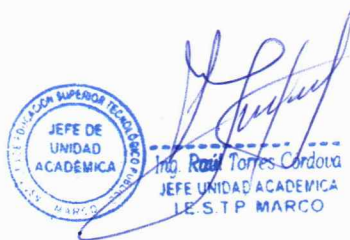 EDUCACIÓN SUPERIOR TECNOLÓGICO PÚBLICO
JEFE DE
UNIDAD
ACADÉMICA
MARCO
Ing. Raúl Torres Córdova
JEFE UNIDAD ACADEMICA
I.E.S.T.P MARCO